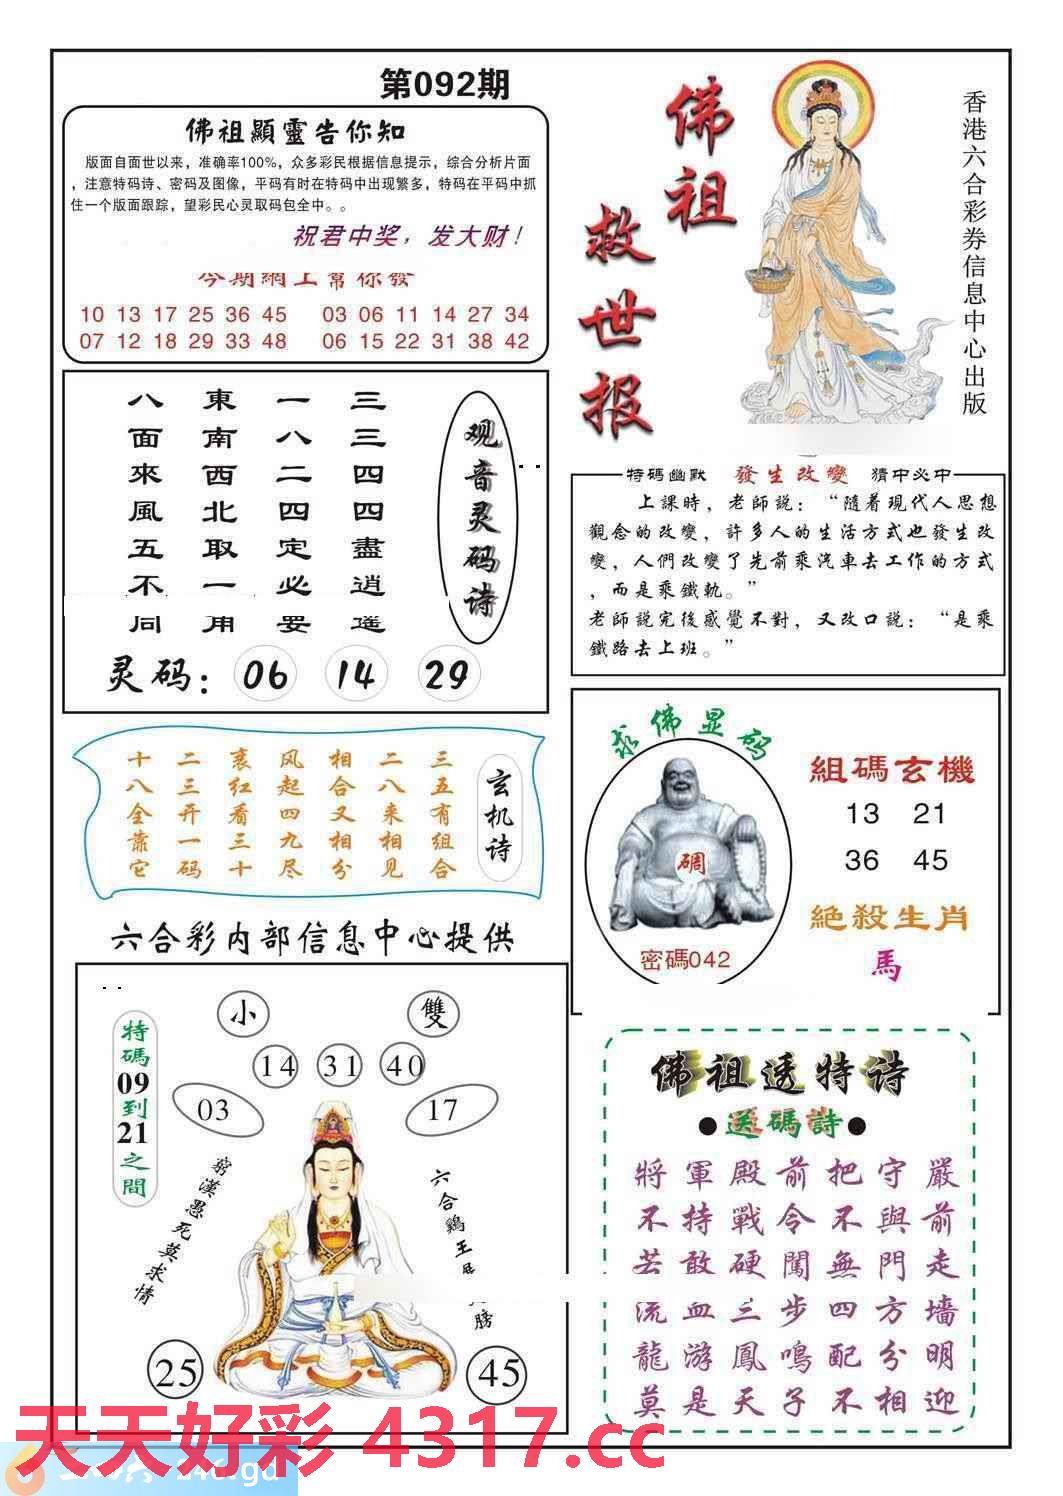 第092期
佛祖顯靈告你知
版面自面世以来，准确率100%，众多彩民根据信息提示，综合分析片面
，注意特码诗、密码及图像，平码有时在特码中出现繁多，特码在平码中抓
住一个版面跟踪，望彩民心灵取码包全中。。
祝君中奖，发大财！
今期網上幫你發
10 13 17 25 36 45 03 06 11 14 27 34
07 12 18 29 33 48 06 15 22 31 38 42
佛祖
救世报
香港六合彩券信息中心出版
观音灵码诗
三三四四盡逍遥
一八二四定必要
東南西北取一用
八面來風五不同
灵码：06 14 29
特碼幽默 發生改變 猜中必中
上課時，老師説：“隨着現代人思想
觀念的改變，許多人的生活方式也發生改
變，人們改變了先前乘汽車去工作的方式
，而是乘鐵軌。”
老師説完後感覺不對，又改口説：“是乘
鐵路去上班。”
玄机诗
三五有组合
二八来相见
相合又相分
风起四九尽
裹红看三十
二三开一码
十八全靠它
求佛显码
碉
密碼042
組碼玄機
13 21
36 45
絕殺生肖
馬
六合彩内部信息中心提供
特碼09到21之間
小 雙
14 31 40
03 17
窮漢愚死莫求情
六合鷄王
膀
25 45
佛祖透特诗
●送碼詩●
將軍殿前把守嚴
不持戰令不與前
若敢硬闖無門走
流血三步四方墻
龍游鳳鳴配分明
莫是天子不相迎
天天好彩 4317.cc
246.gd